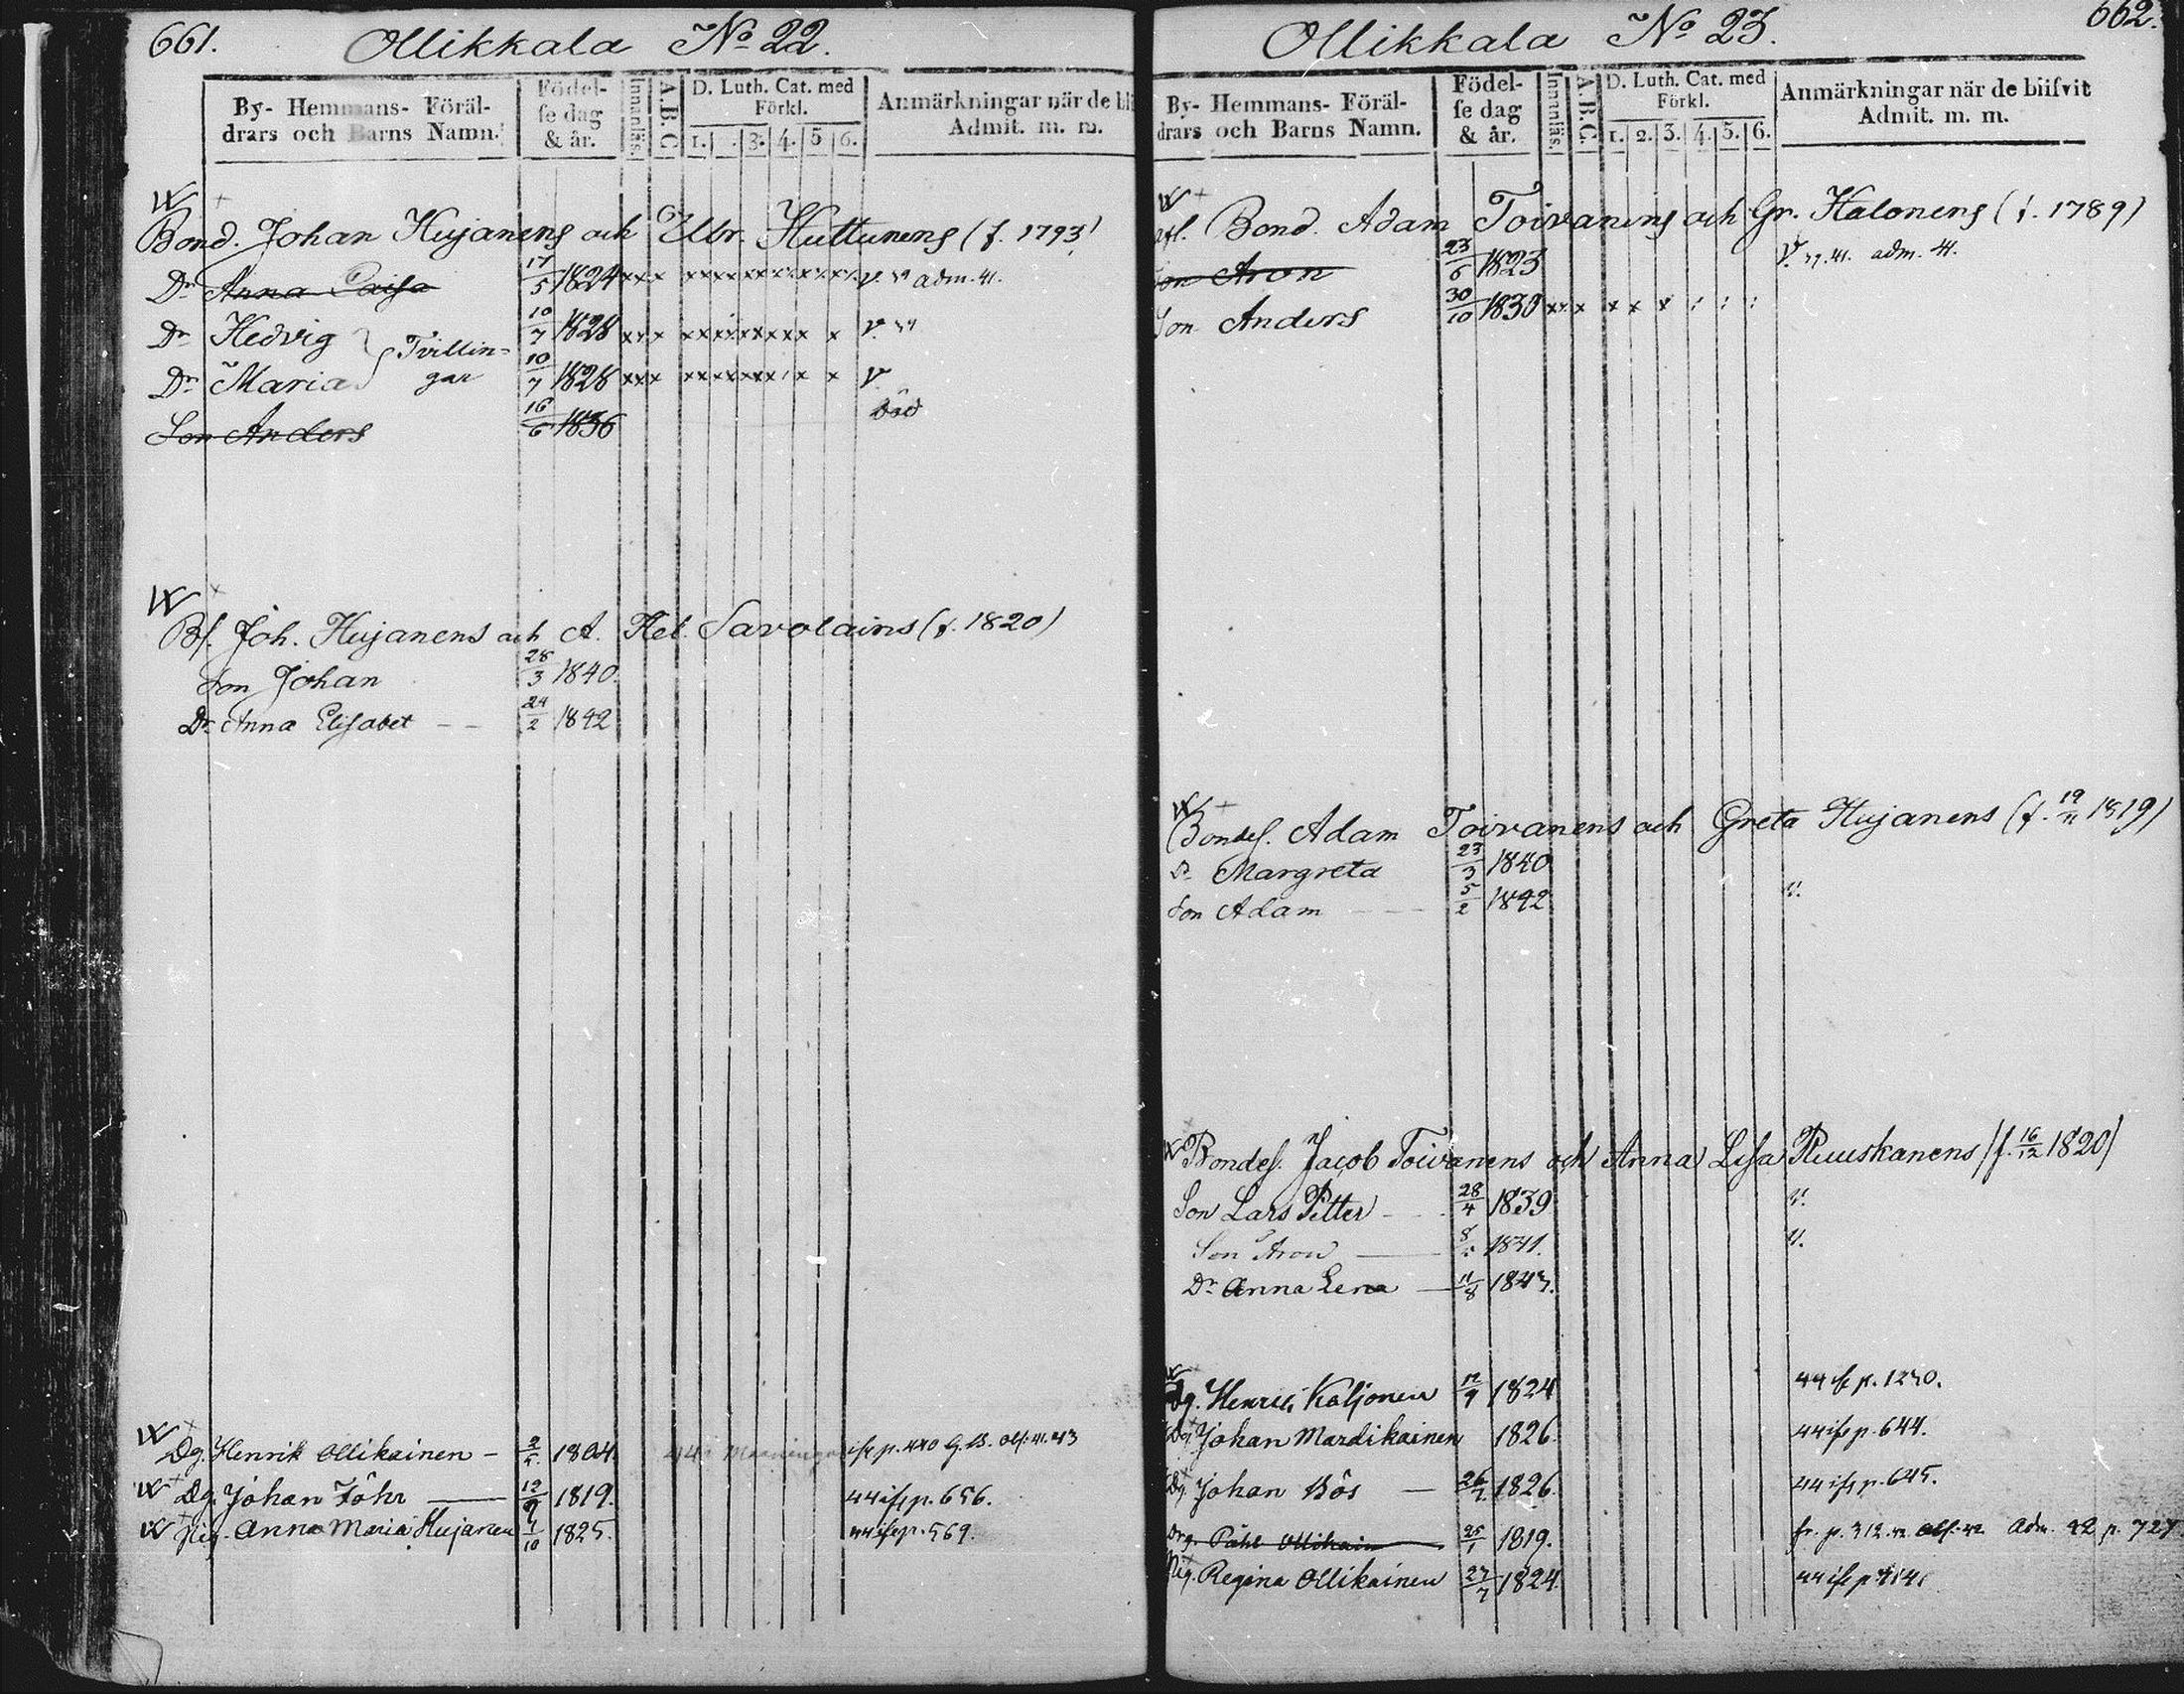 661.
Ollikkala No 22.
By- Hemmans- Föräl-
drars och Barns Namn.
Födel-
se dag
& år.
Innanläs.
A.B.C
D. Luth. Cat. med
Förkl.
1. . 3. 4. 5 6.
Anmärkningar när de bli
Admit. m. m.
Bond. Johan Hujanens och Ulr. Huttunens (f. 1793)
Dr Anna Caisa 17/5 1824 xxx xxxxxxxxxxxx V. 39 adm. 41.
Dr Hedvig 10/7 1828 xxx xxxxxxxxx x V. 39
Tvillin-
gar
Dr Maria 10/7 1828 xxx xxxxxx x x V
Son Anders 16/6 1836 död
Bs. Joh. Hujanens och A. Hel. Savolains (f. 1820)
Son Johan 28/3 1840.
Dr Anna Elisabet 24/2 1842
Dg. Henrik Ollikainen 1804. ifr p. 440 G.B. Abs: 41. 43
Dg. Johan Föhr 12/9 1819. 44 ifr p. 656.
Pig. Anna Maria Hujanen 1/10 1825. 44 ifr p. 569.
662.
Ollikkala No 23.
By- Hemmans- Föräl-
drars och Barns Namn.
Födel-
se dag
& år.
Innanläs.
A.B.C.
D. Luth. Cat. med
Förkl.
1. 2. 3. 4. 5. 6.
Anmärkningar när de blifvit
Admit. m. m.
afl. Bond. Adam Toivanens och Gr. Halonens (f. 1789)
Son Aron 23/6 1823 V. 39. 41. adm. 41.
Son Anders 30/10 1830 xxx x x x : : :
Bondes. Adam Toivanens och Greta Hujanens (f. 19/11 1819)
Dr Margreta 23/3 1840
Son Adam 5/2 1842 v.
Bondes. Jacob Toivanens och Anna Lisa Ruuskanens (f. 16/12 1820)
Son Lars Petter 28/4 1839 v.
Son Aron 1841. v.
Dr Anna Lena 11/8 1843.
Dg. Henric Koljonen 12/9 1824 44 ifr p. 1230.
Dg. Johan Mardikainen 1826. 44 ifr p. 644.
Dg. Johan Bös 26/7 1826. 44 ifr p. 645.
Drg. Påhl Ollikain 25/1 1819. fr. p. 312. 42 Abs: 42 Adm. 42 p. 727
Pig. Regina Ollikainen 27/7 1824. 44 ifr p.